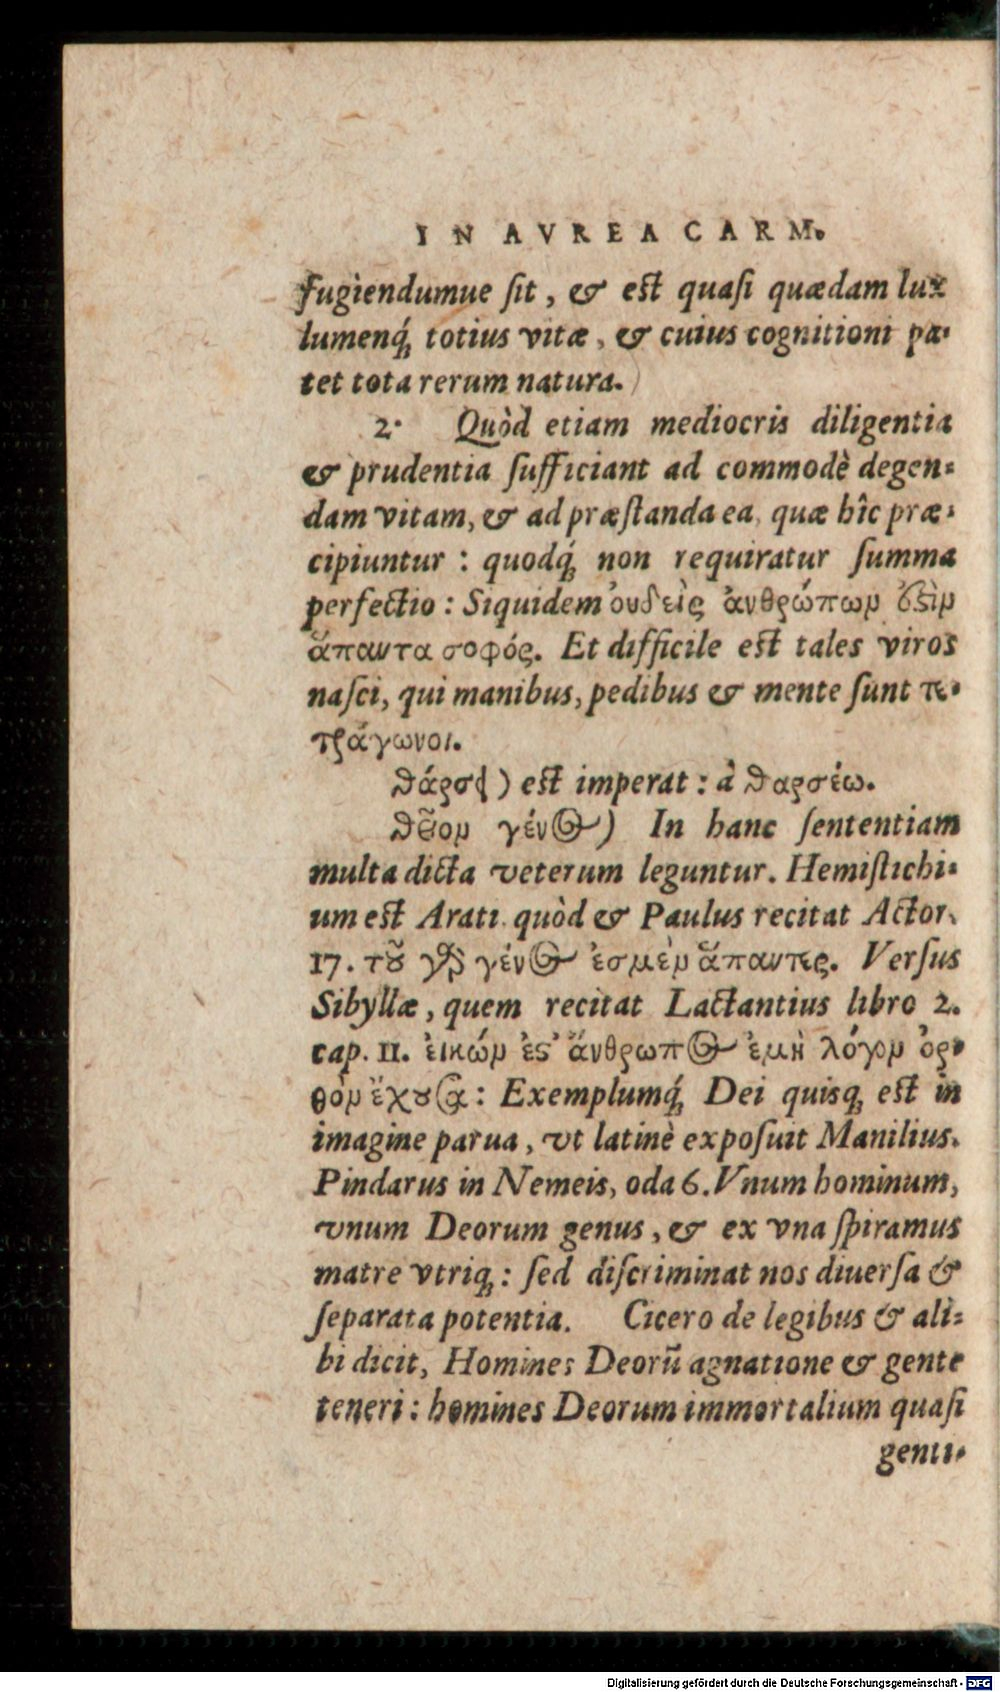 IN AVREA CARM.
fugiendumue ſit, & eſt quaſi quædam lux
lumenq́; totius vitæ, & cuius cognitioni pa-
tet tota rerum natura.
2. Quòd etiam mediocris diligentia
& prudentia ſufficiant ad commodè degen-
dam vitam, & ad præſtanda ea, quæ hîc præ-
cipiuntur: quodq́; non requiratur ſumma
perfectio: Siquidem ὀυδεὶς ἀνθρώπων ἐϛὶν
ἅπαντα σοφός. Et difficile eſt tales viros
naſci, qui manibus, pedibus & mente ſunt τε-
τράγωνοι.
θάρσει) eſt imperat: à θαρσέω.
θεῖον γένος) In hanc ſententiam
multa dicta veterum leguntur. Hemiſtichi-
um eſt Arati quòd & Paulus recitat Actor.
17. τοῦ γὰρ γένος ἐσμὲν ἅπαντες. Verſus
Sibyllæ, quem recitat Lactantius libro 2.
cap. 11. ἐικών ἐϛ' ἄνθρωπος ἐμὴ λόγον ὀρ-
θὸν ἔχουσα: Exemplumq́; Dei quisq; eſt in
imagine parua, vt latinè expoſuit Manilius.
Pindarus in Nemeis, oda 6. Vnum hominum,
vnum Deorum genus, & ex vna ſpiramus
matre vtriq;: ſed diſcriminat nos diuerſa &
ſeparata potentia. Cicero de legibus & ali-
bi dicit, Homines Deorũ agnatione & gente
teneri: homines Deorum immortalium quaſi
genti-
Digitalisierung gefördert durch die Deutsche Forschungsgemeinschaft - DFG